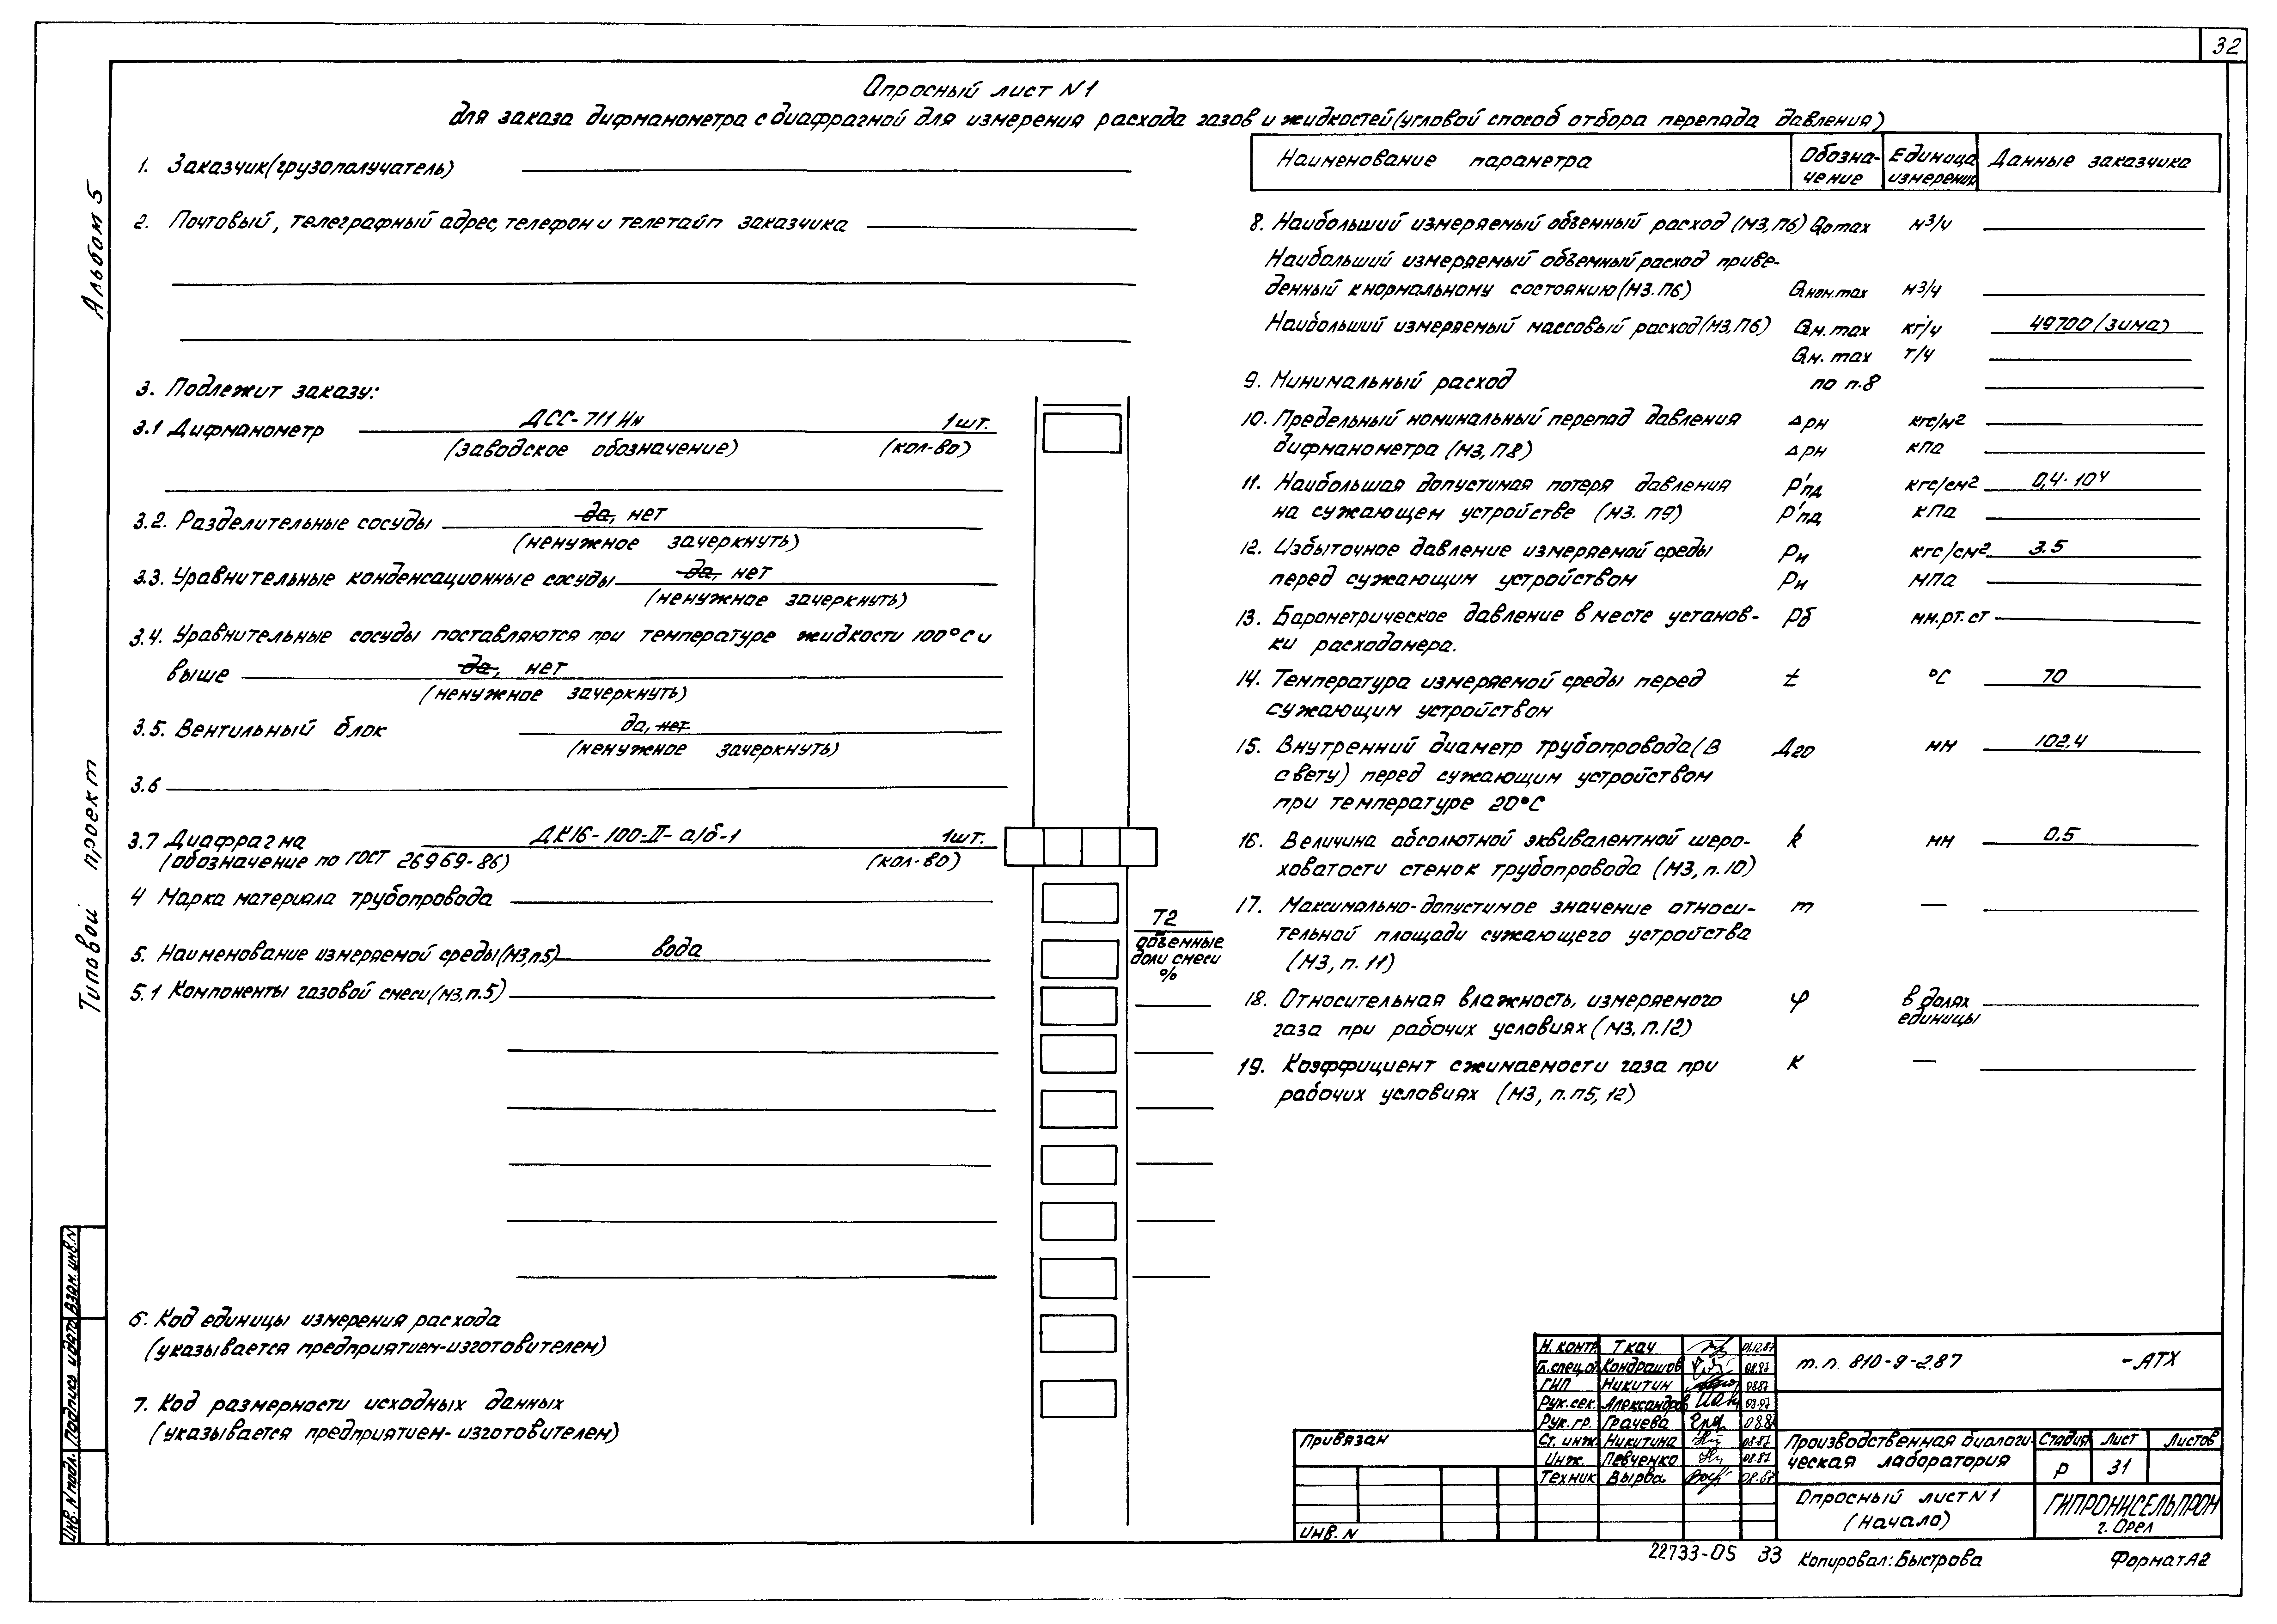 32
Опросный лист N1
для заказа дифманометра с диафрагмой для измерения расхода газов и жидкостей (угловой способ отбора перепада давления)
Альбом 5
Типовой проект
1. Заказчик (грузополучатель)
2. Почтовый, телеграфный адрес, телефон и телетайп заказчика
3. Подлежит заказу:
3.1 Дифманометр ДСС-711Ин 1шт.
(заводское обозначение) (кол-во)
3.2. Разделительные сосуды да, нет
(ненужное зачеркнуть)
3.3. Уравнительные конденсационные сосуды да, нет
(ненужное зачеркнуть)
3.4. Уравнительные сосуды поставляются при температуре жидкости 100°С и
выше да, нет
(ненужное зачеркнуть)
3.5. Вентильный блок да, нет
(ненужное зачеркнуть)
3.6
3.7 Диафрагма ДК16-100-II-а/б-1 1шт.
(обозначение по ГОСТ 26969-86) (кол-во)
4 Марка материала трубопровода
5. Наименование измеряемой среды (МЗ,п.5) вода
5.1 Компоненты газовой смеси (МЗ,п.5)
Т2
объемные
доли смеси
%
6. Код единицы измерения расхода
(указывается предприятием-изготовителем)
7. Код размерности исходных данных
(указывается предприятием-изготовителем)
Наименование параметра Обозна- Единица Данные заказчика
чение измерения
8. Наибольший измеряемый объемный расход (МЗ,П6) Qоmax м3/ч
Наибольший измеряемый объемный расход приве-
денный к нормальному состоянию (МЗ.П6) Qном.max м3/ч
Наибольший измеряемый массовый расход (МЗ,П6) Qм.max кг/ч 49700 (зима)
Qм.max т/ч
9. Минимальный расход по п.8
10. Предельный номинальный перепад давления Δрн кгс/м2
дифманометра (МЗ,П8) Δрн кПа
11. Наибольшая допустимая потеря давления Р'пд кгс/см2 0,4·10⁴
на сужающем устройстве (МЗ. П9) Р'пд кПа
12. Избыточное давление измеряемой среды Ри кгс/см2 3.5
перед сужающим устройством Ри МПа
13. Барометрическое давление в месте установ- Рб мм.рт.ст
ки расходомера.
14. Температура измеряемой среды перед t °С 70
сужающим устройством
15. Внутренний диаметр трубопровода (в Д20 мм 102,4
свету) перед сужающим устройством
при температуре 20°С
16. Величина абсолютной эквивалентной шеро- k мм 0,5
ховатости стенок трубопровода (МЗ, п.10)
17. Максимально-допустимое значение относи- m —
тельной площади сужающего устройства
(МЗ, п. 11)
18. Относительная влажность, измеряемого φ в долях
газа при рабочих условиях (МЗ, П.12) единицы
19. Коэффициент сжимаемости газа при К —
рабочих условиях (МЗ, п.п5, 12)
Н.контр. Ткач 01.12.87
Гл.спец.от Кондрашов 08.87
ГИП Никитин 08.87
Рук.сек. Александров 08.87
Рук.гр. Грачева 08.87
Ст. инж. Никитина 08.87
Инж. Левченко 08.87
Техник Вырва 08.87
т.п. 810-9-2.87 -АТХ
Привязан
ИНВ. N
Производственная биологи-
ческая лаборатория
Стадия Лист Листов
Р 31
Опросный лист N1
(Начало)
ГИПРОНИСЕЛЬПРОМ
г. Орел
Инв. N подл. Подпись и дата Взам. инв. N
22733-05 33 Копировал: Быстрова Формат А2